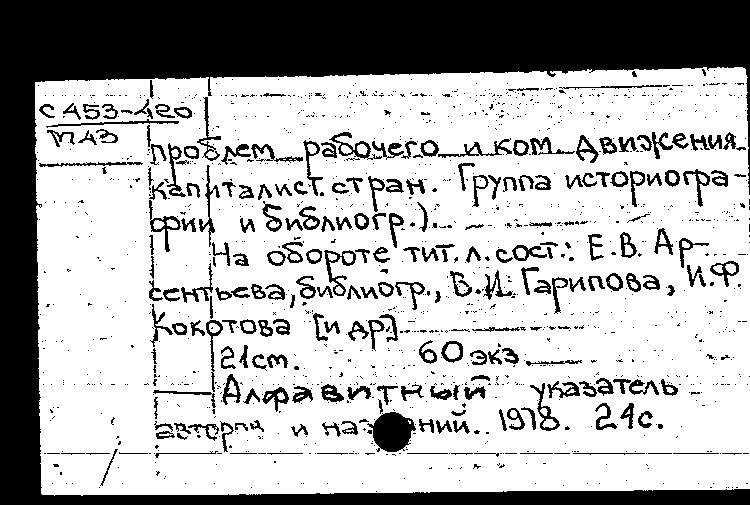 С453-420
П43
проблем рабочего и ком. движения
капиталист. стран. Группа историогра-
фии и библиогр.).
На обороте тит. л. сост.: Е.В. Ар-
сентьева, библиогр., В.И. Гарипова, И.Ф.
Кокотова [и др.]
21 cm. 60 экз.
Алфавитный указатель
авторов и названий. 1978. 24с.